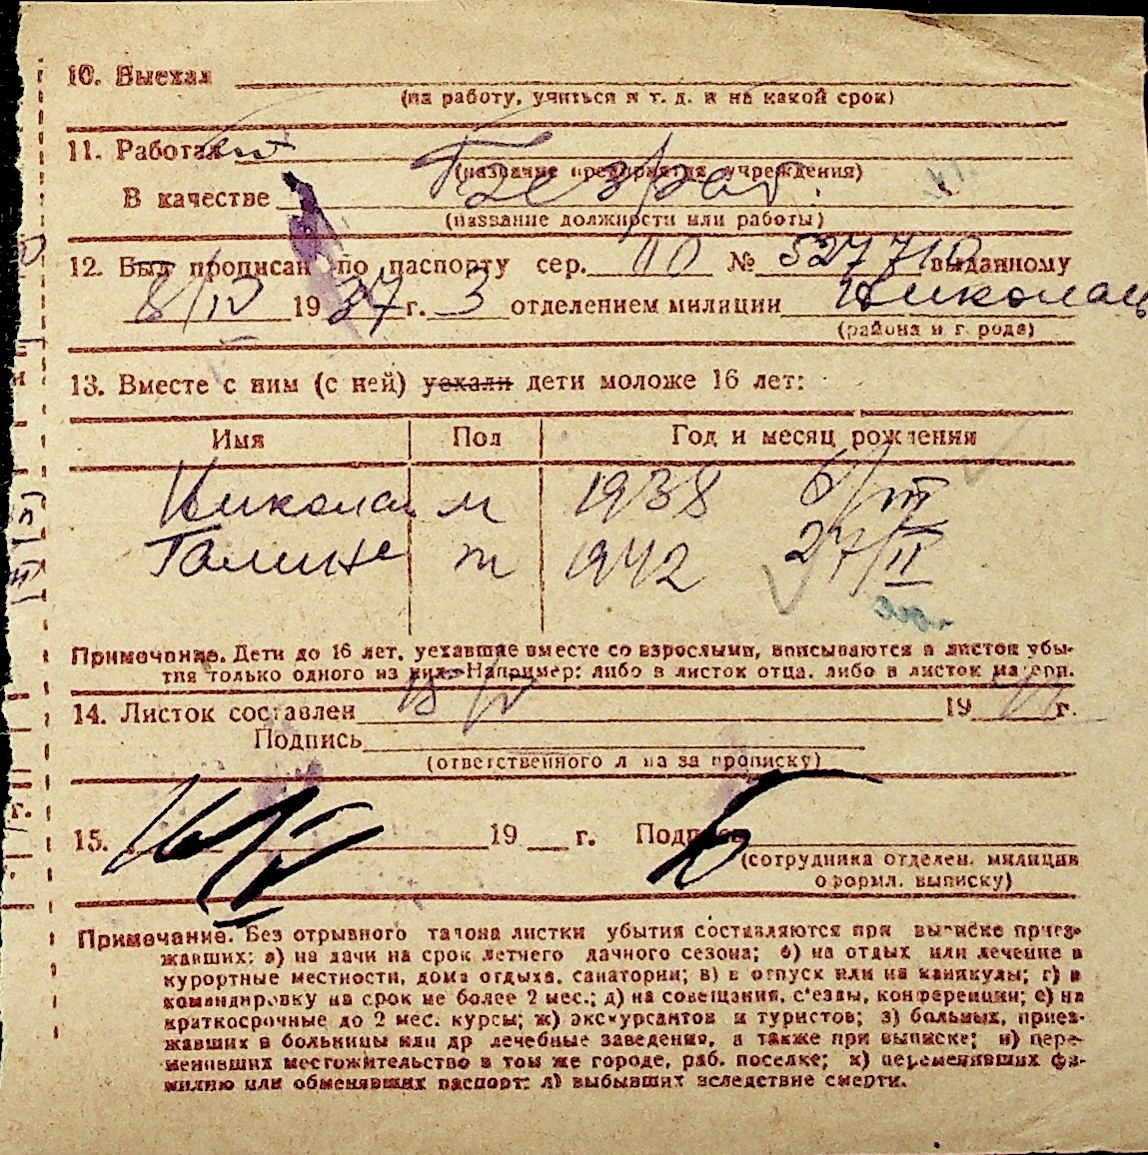 10. Выехал
(на работу, учиться и т. д. и на какой срок)
11. Работал
(название предприятия, учреждения)
В качестве Безраб.
(название должности или работы)
12. Был прописан по паспорту сер. № 527710 выданному
8/IV 1937 г. 3 отделением милиции Николаев
(района и г. рода)
13. Вместе с ним (с ней) уехали дети моложе 16 лет:
Имя Пол Год и месяц рождения
Николай м 1938 6/III
Галина ж 1942 27/II
Примечание. Дети до 16 лет, уехавшие вместе со взрослыми, вписываются в листок убы-
тия только одного из них. Например: либо в листок отца, либо в листок матери.
14. Листок составлен 15/IV 19 г.
Подпись
(ответственного лица за прописку)
15. 19 г. Подпись
(сотрудника отделен. милиции
оформл. выписку)
Примечание. Без отрывного талона листки убытия составляются при выписке приез-
жавших: а) на дачи на срок летнего дачного сезона; б) на отдых или лечение в
курортные местности, дома отдыха, санатории; в) в отпуск или на каникулы; г) в
командировку на срок не более 2 мес.; д) на совещания, с'езды, конференции; е) на
краткосрочные до 2 мес. курсы; ж) экскурсантов и туристов; з) больных, приез-
жавших в больницы или др лечебные заведения, а также при выписке; и) пере-
менивших местожительство в том же городе, раб. поселке; к) переменивших фа-
милию или обменявших паспорт; л) выбывших вследствие смерти.